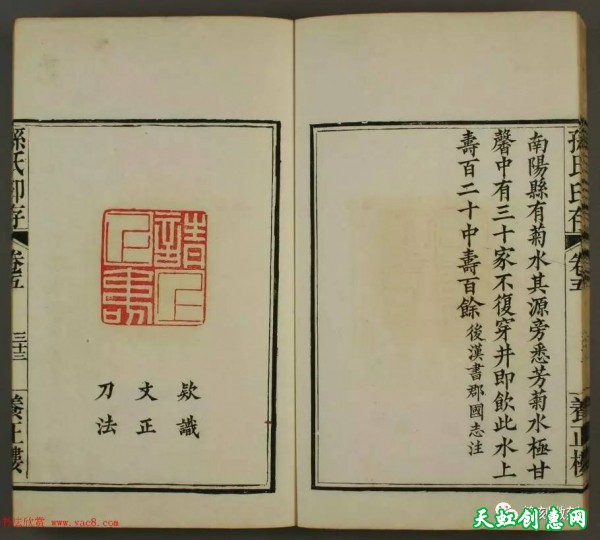 南陽縣有菊水其源旁悉芳菊水極甘
馨中有三十家不復穿井即飲此水上
壽百二十中壽百餘 後漢書郡國志注
孫氏印存 卷五
養正樓
欵識
文正
刀法
孫氏印存 卷五 三十三 養正樓
书坛欣赏 www.yac8.com
天虹创意网